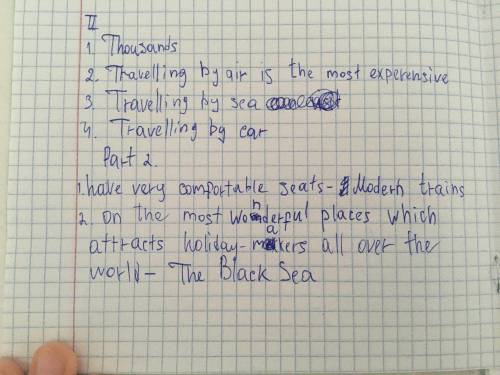 II
1 Thousands
2. Travelling by air is the most experensive
3. Travelling by sea
4. Travelling by car
Part 2.
1. have very comfortable seats - Modern trains
2. on the most wonderful places which
attracts holiday-makers all over the
world - The Black Sea